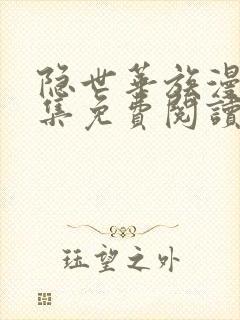 隐世华族漫
集免費閱讀
珏望之外